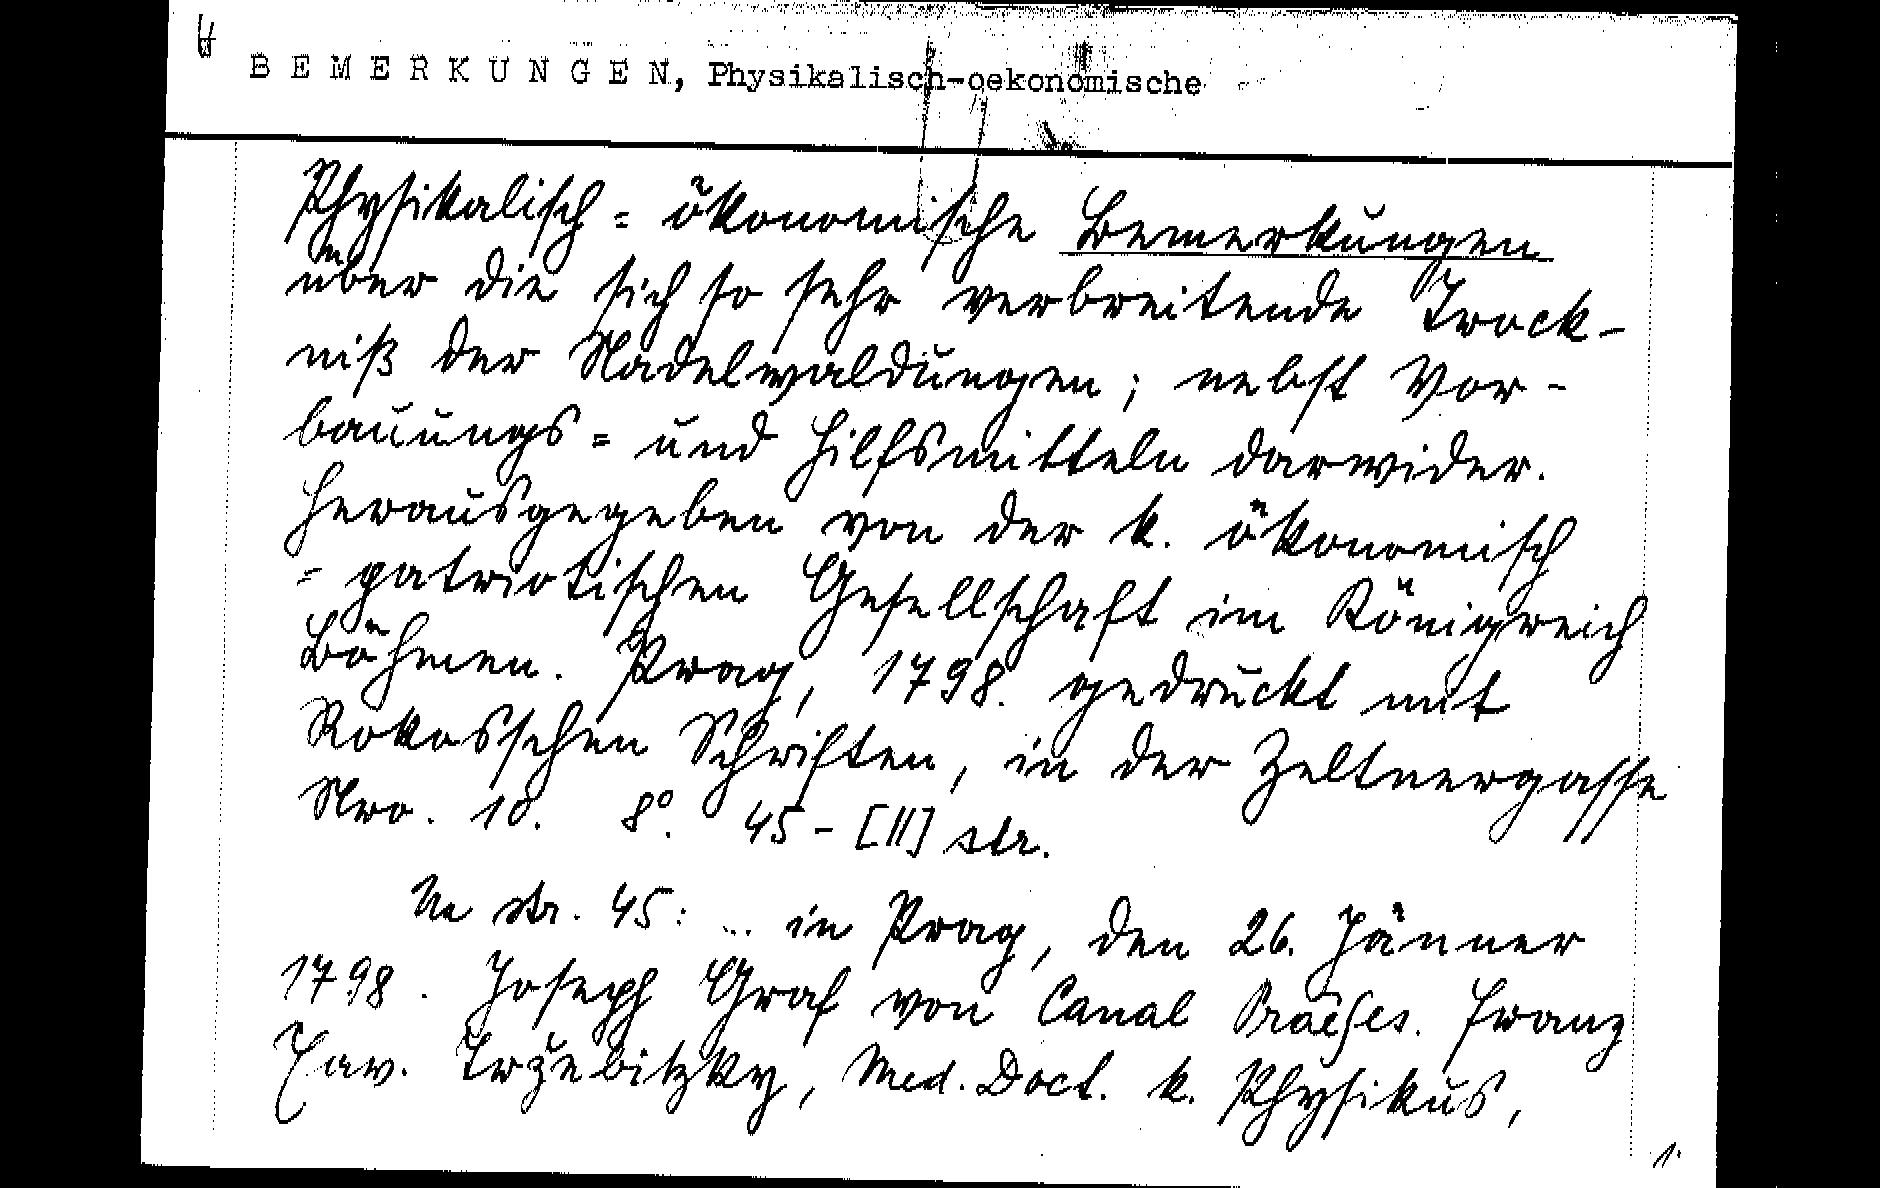 B E M E R K U N G E N, Physikalisch-oekonomische
Physikalisch = ökonomische Bemerkungen
über die sich so sehr verbreitende Trock-
niß der Nadelwaldungen; nebst Vor-
bauungs = und Hilfsmitteln darwider.
Herausgegeben von der k. ökonomisch
= patriotischen Gesellschaft im Königreich
Böhmen. Prag, 1798. gedruckt mit
Rokosschen Schriften, in der Zeltnergasse
Nro. 10. 8°. 45 - [II] str.
Na str. 45: ... in Prag, den 26. Jänner
1798. Joseph Graf von Canal Praeses. Franz
Xav. Tržebitzky, Med. Doct. k. Physikus,
1.